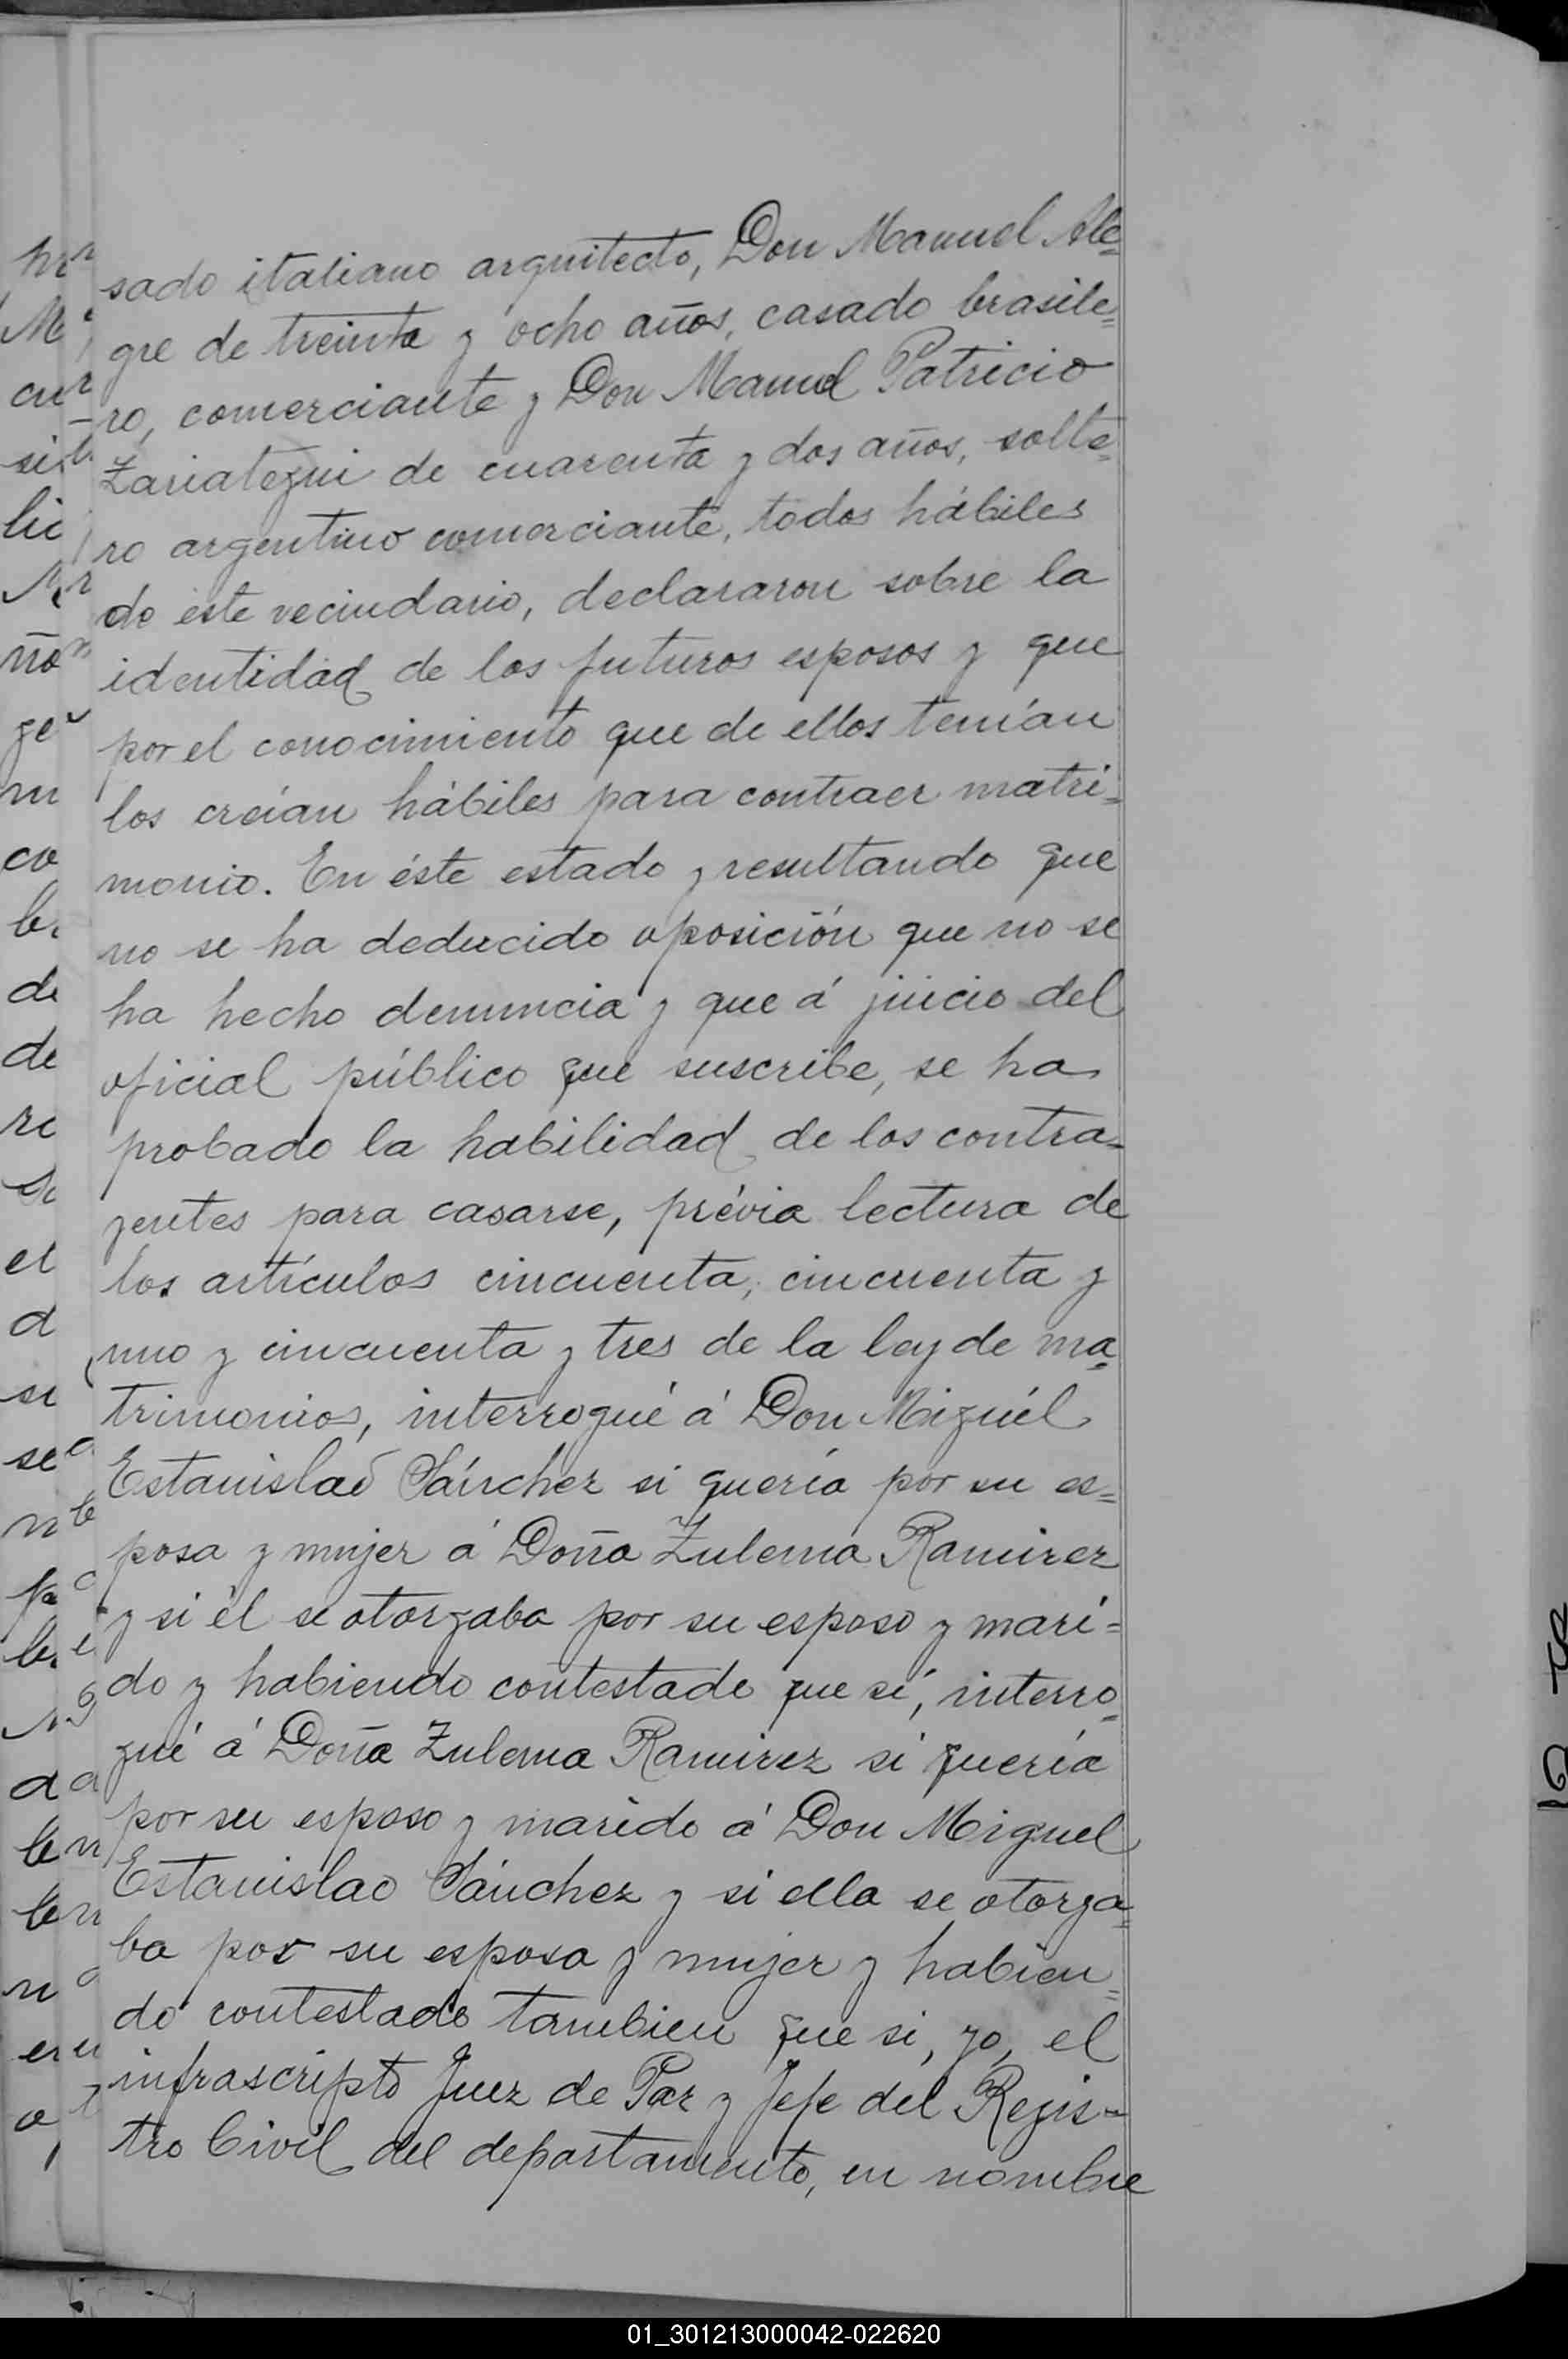 sado italiano arquitecto, Don Manuel Ale=
gre de treinta y ocho años, casado brasile=
ro, comerciante y Don Manuel Patricio
Zariategui de cuarenta y dos años, solte=
ro argentino comerciante, todos hábiles
de este vecindario, declararon sobre la
identidad de los futuros esposos y que
por el conocimiento que de ellos tenían
los creían hábiles para contraer matri=
monio. En éste estado y resultando que
no se ha deducido oposición que no se
ha hecho denuncia y que á juicio del
oficial público que suscribe, se ha
probado la habilidad de los contra=
yentes para casarse, prévia lectura de
los artículos cincuenta, cincuenta y
uno y cincuenta y tres de la ley de ma=
trimonios, interrogué á Don Miguél
Estanislao Sánchez si quería por su es=
posa y mujer á Doña Zulema Ramirez
y si él se otorgaba por su esposo y mari=
do y habiendo contestado que sí, interro=
gué á Doña Zulema Ramirez si quería
por su esposo y marido á Don Miguel
Estanislao Sánchez y si ella se otorga=
ba por su esposa y mujer y habien=
do contestado tambien que si, yo, el
infrascripto Juez de Paz y Jefe del Regis=
tro Civil del departamento, en nombre
01_301213000042-022620